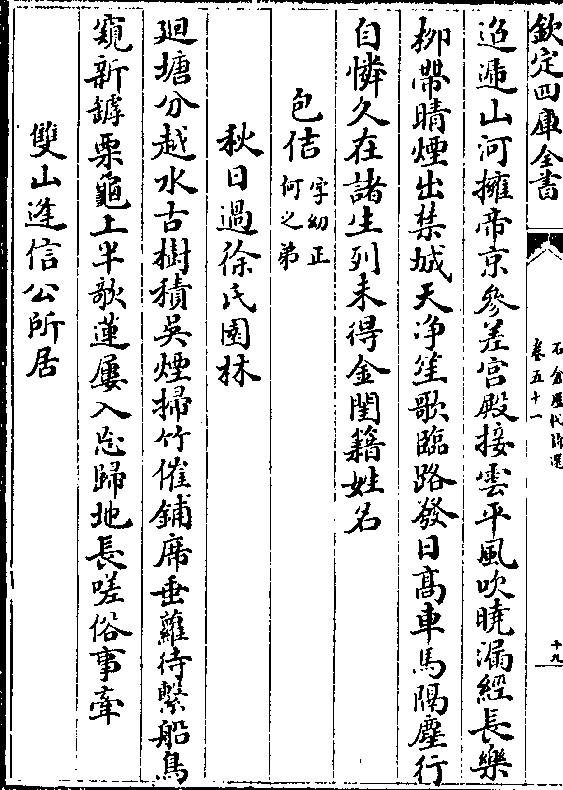 欽定四庫全書
石倉歷代詩選
卷五十一
十九
迢遞山河擁帝京參差宮殿接雲平風吹曉漏經長樂
柳帶晴煙出禁城天净笙歌臨路發日髙車馬隔塵行
自憐久在諸生列未得金閨籍姓名
包佶
字幼正
何之弟
秋日過徐氏園林
廻塘分越水古樹積吳煙掃竹催鋪席垂蘿待繫船鳥
窺新罅栗龜上半欹蓮屢入忘歸地長嗟俗事牽
雙山逢信公所居